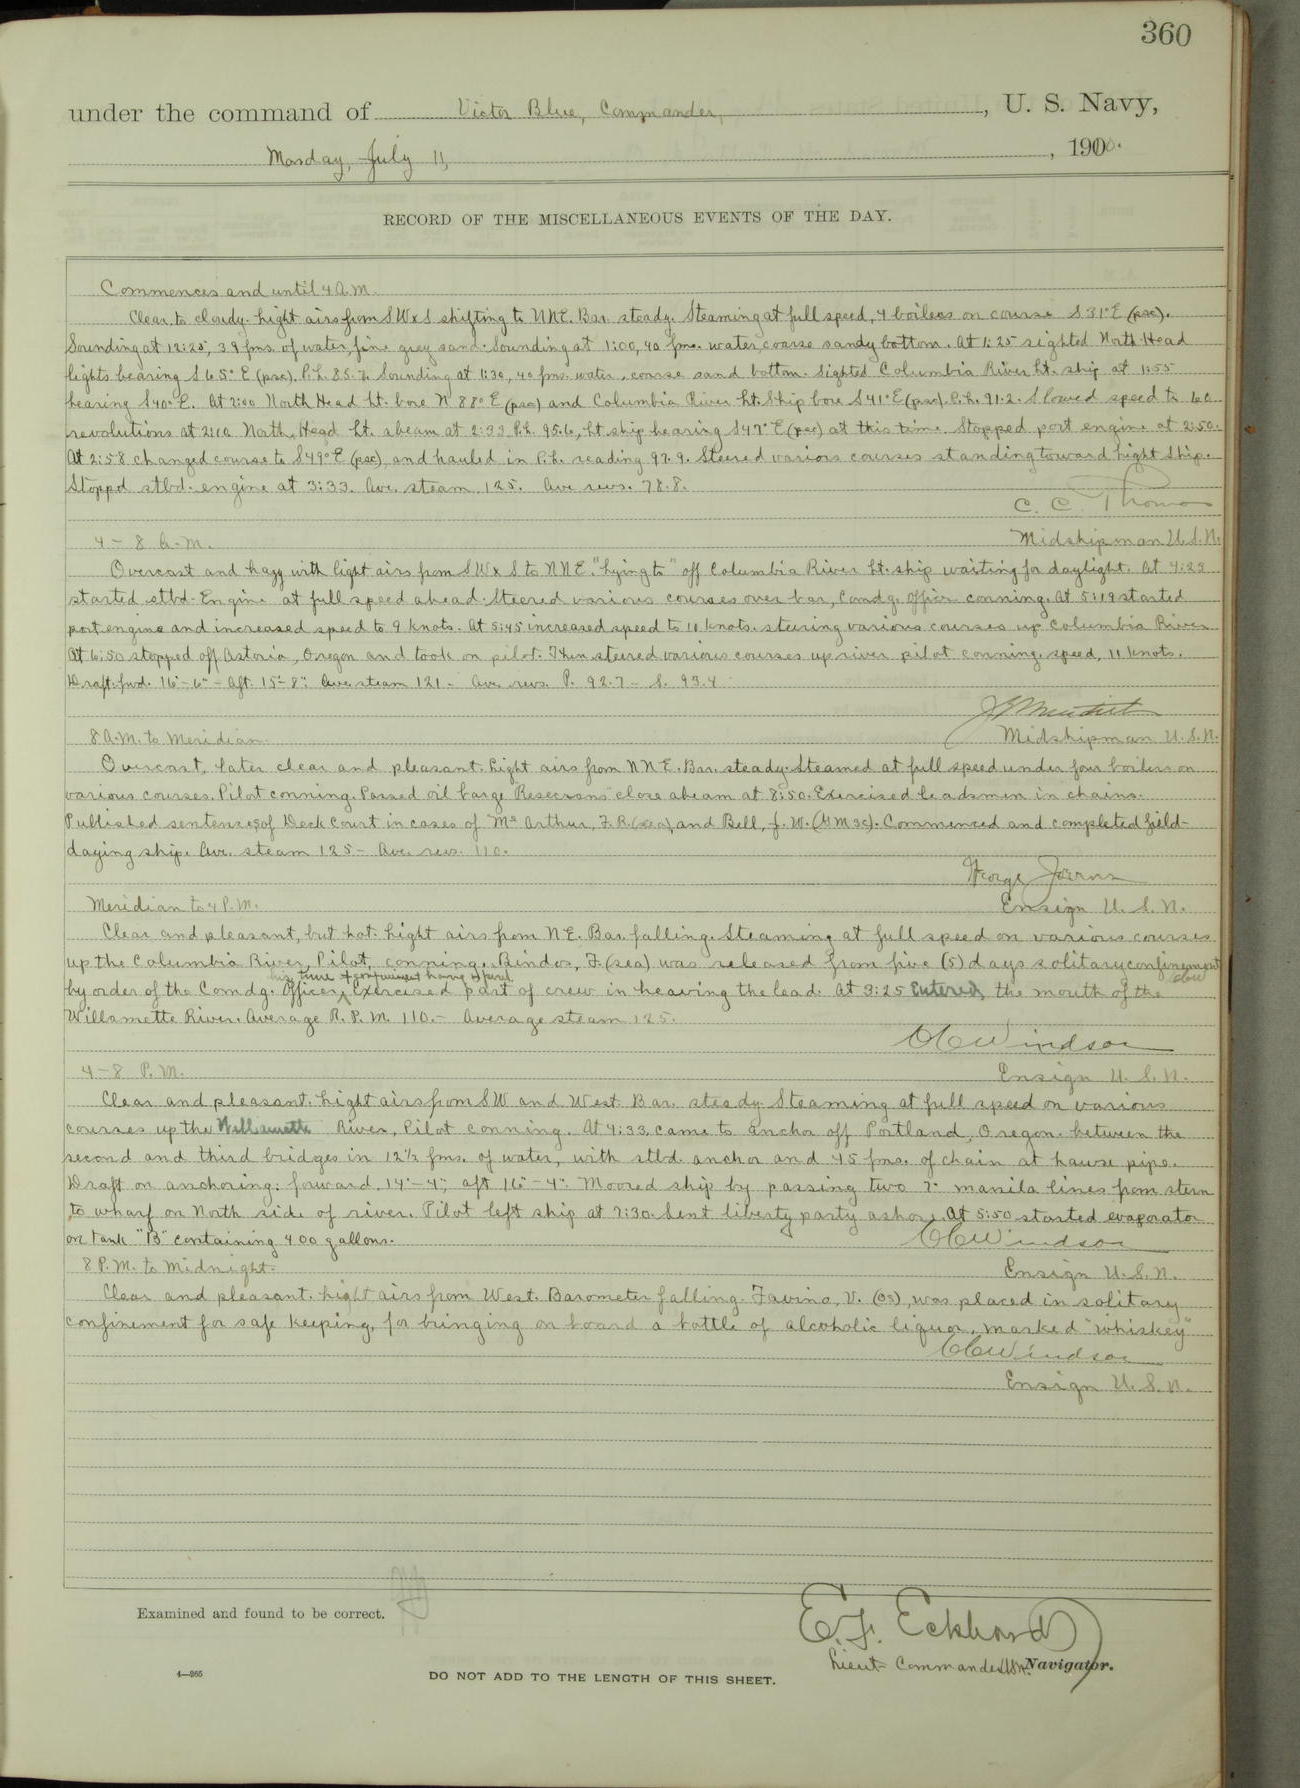 360
under the command of Victor Blue, Commander, , U. S. Navy,
Monday, July 11, , 1910.
RECORD OF THE MISCELLANEOUS EVENTS OF THE DAY.
Commences and until 4 A.M.
Clear to cloudy. Light airs from SWxS shifting to NNE. Bar. steady. Steaming at full speed, 4 boilers on course S 31° E (psc).
Sounding at 12:25, 39 fms. of water, fine grey sand. Sounding at 1:00, 40 fms. water, coarse sandy bottom. At 1:25 sighted North Head
lights bearing S 65° E (psc). P.L. 85.7. Sounding at 1:30, 40 fms. water, coarse sand bottom. Sighted Columbia River Lt. ship at 1:55
bearing S40° E. At 2:00 North Head Lt. bore N 88° E (psc) and Columbia River Lt. Ship bore S 41° E (psc). P.L. 91.2. Slowed speed to 60
revolutions at 2:10. North Head Lt. abeam at 2:33 P.L. 95.6, Lt. ship bearing S 47° E (psc) at this time. Stopped port engine at 2:50.
At 2:58 changed course to S 49° E (psc), and hauled in P.L. reading 97.9. Steered various courses standing toward Light Ship.
Stoppd stbd. engine at 3:33. Ave. steam 125. Ave revs. 78.8.
C. C. Thomas
4 - 8 A.M. Midshipman U.S.N.
Overcast and hazy with light airs from SWxS to NNE. "Lying to" off Columbia River Lt. ship waiting for daylight. At 4:23
started stbd. Engine at full speed ahead. Steered various courses over bar, Comdg. Officer conning. At 5:19 started
port engine and increased speed to 9 knots. At 5:45 increased speed to 10 knots. steering various courses up Columbia River
At 6:50 stopped off Astoria, Oregon and took on pilot. Then steered various courses up river pilot conning, speed, 11 knots.
Draft. fwd. 16'-6" - Aft. 15'-8". Ave. steam 121 - Ave. revs. P. 92.7 - S. 93.4
8 A.M. to Meridian. Midshipman U.S.N.
Overcast, later clear and pleasant. Light airs from NNE. Bar. steady. Steamed at full speed under four boilers on
various courses. Pilot conning. Passed oil barge "Rosecrans" close abeam at 8:50. Exercised leadsmen in chains.
Published sentences of Deck Court in cases of McArthur, F. R. (sea) and Bell, J. W. (GM3c). Commenced and completed field-
daying ship. Ave. steam 125 - Ave. revs. 110.
George Joerns
Meridian to 4 P.M. Ensign U. S. N.
Clear and pleasant, but hot. Light airs from NE. Bar. falling. Steaming at full speed on various courses
up the Columbia River, Pilot, conning. Bindos, F. (sea) was released from five (5) days solitary confinement
his time of confinement having expired. OCW
by order of the Comdg. Officer. Exercised part of crew in heaving the lead. At 3:25 Entered the mouth of the
Willamette River. Average R. P. M. 110. - Average steam 125.
OCWindsor
4 - 8 P.M. Ensign U. S. N.
Clear and pleasant. Light airs from SW and West. Bar. steady. Steaming at full speed on various
courses up the Willamette River, Pilot conning. At 4:33 came to anchor off Portland, Oregon. between the
second and third bridges in 12½ fms. of water, with stbd. anchor and 45 fms. of chain at hawse pipe.
Draft on anchoring: forward. 14'-4"; aft 16'-4". Moored ship by passing two 7" manila lines from stern
to wharf on North side of river. Pilot left ship at 7:30. Sent liberty party ashore. At 5:50 started evaporator
on tank "B" containing 400 gallons. OCWindsor
8 P.M. to Midnight. Ensign U.S.N.
Clear and pleasant. Light airs from West. Barometer falling. Favino, V. (OS), was placed in solitary
confinement for safe keeping, for bringing on board a bottle of alcoholic liquor, marked "whiskey"
OCWindsor
Ensign U. S. N.
Examined and found to be correct.
E. F. Eckhardt
Lieut-Commander USN. Navigator.
4—265
DO NOT ADD TO THE LENGTH OF THIS SHEET.